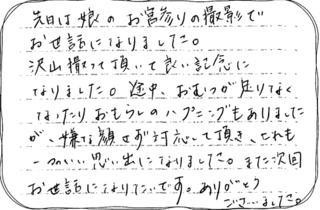 先日は娘のお宮参りの撮影で
お世話になりました。
沢山撮って頂いて良い記念に
なりました。途中、おむつが足りなく
なったりおもらしのハプニングもありました
が、嫌な顔せず対応して頂き、それも
一つのいい思い出になりました。また次回
お世話になりたいです。ありがとう
ございました。